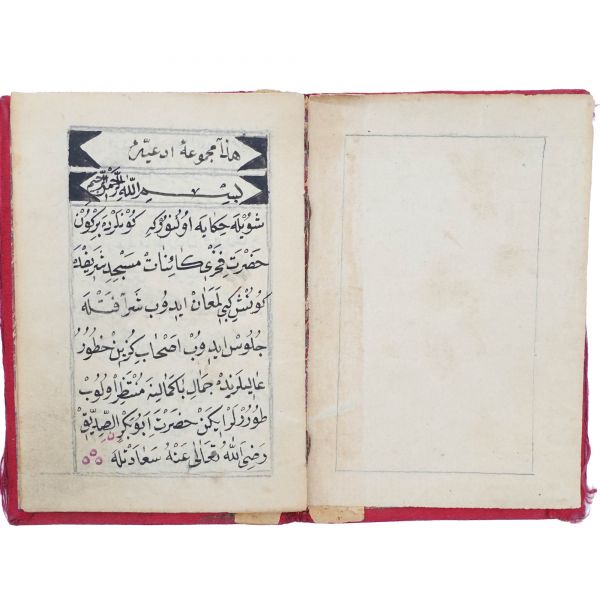 هذا مجموعهٔ ادعيّهٔ
بِسْمِ اللّٰهِ الرَّحْمٰنِ الرَّحِيمِ
شُويْلَه حِكايَه اُولُنُورْكِه كُونْلَرْدَه بِرْكُونْ
حَضْرَتِ فَخْرِ كَائِنَاتْ مَسْجِدِ شَرِيفْدَه
كُونَشْ كِبِى لَمَعَانْ ايدُوبْ شَرَافَتْلَه
جُلُوسْ ايدُوبْ اَصْحَابِ كُزِينْ حُضُورُ
عَالِيلَرِنْدَه جَمَالِ بَاكَمَالِنَه مُنْتَظِرْ اُولُوبْ
طُورُرْلَرْ اِيكَنْ حَضْرَتِ اَبُو بَكْرِ الصِّدِّيقْ
رَضِىَ اللّٰهُ تَعَالٰى عَنْهُ سَعَادَتْلَه